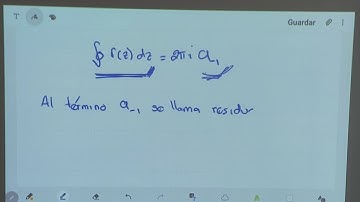 Guardar
∮ f(z) dz = 2πi a₋₁
Al término a₋₁ se llama residu